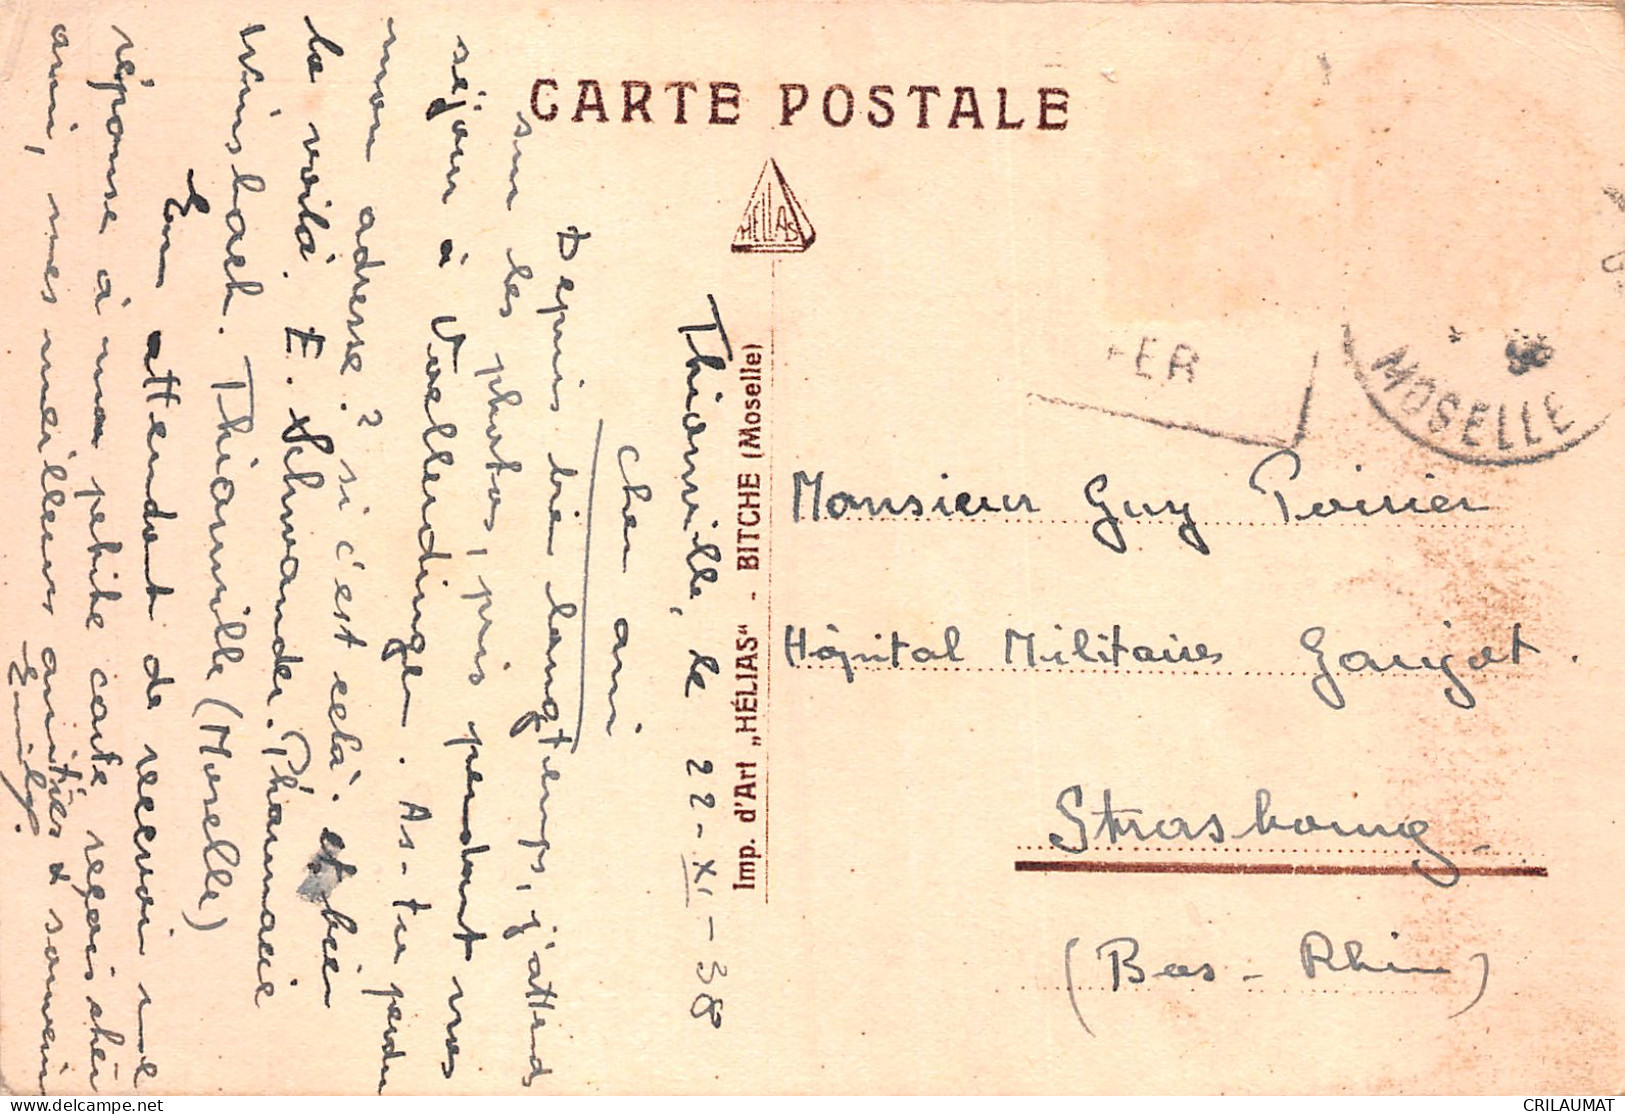 CARTE POSTALE
HÉLIAS
Imp. d'Art „HÉLIAS“ - BITCHE (Moselle)
Thionville, le 22-XI-38
cher ami
Depuis bien longtemps, j'attends
sur les photos, pris pendant nos
séjour à Voellerdingen. As-tu perdu
mon adresse? si c'est celà. et bien
la voilà. E. Schwander. Pharmacie
Weinsbach. Thionville (Moselle)
En attendant de recevoir une
réponse à ma petite carte reçois cher
ami, mes meilleurs amitiés & souvenir
Emily.
FER
MOSELLE
Monsieur Guy Poirier
Hôpital Militaire Gaujot.
Strasbourg
(Bas-Rhin)
CRILAUMAT